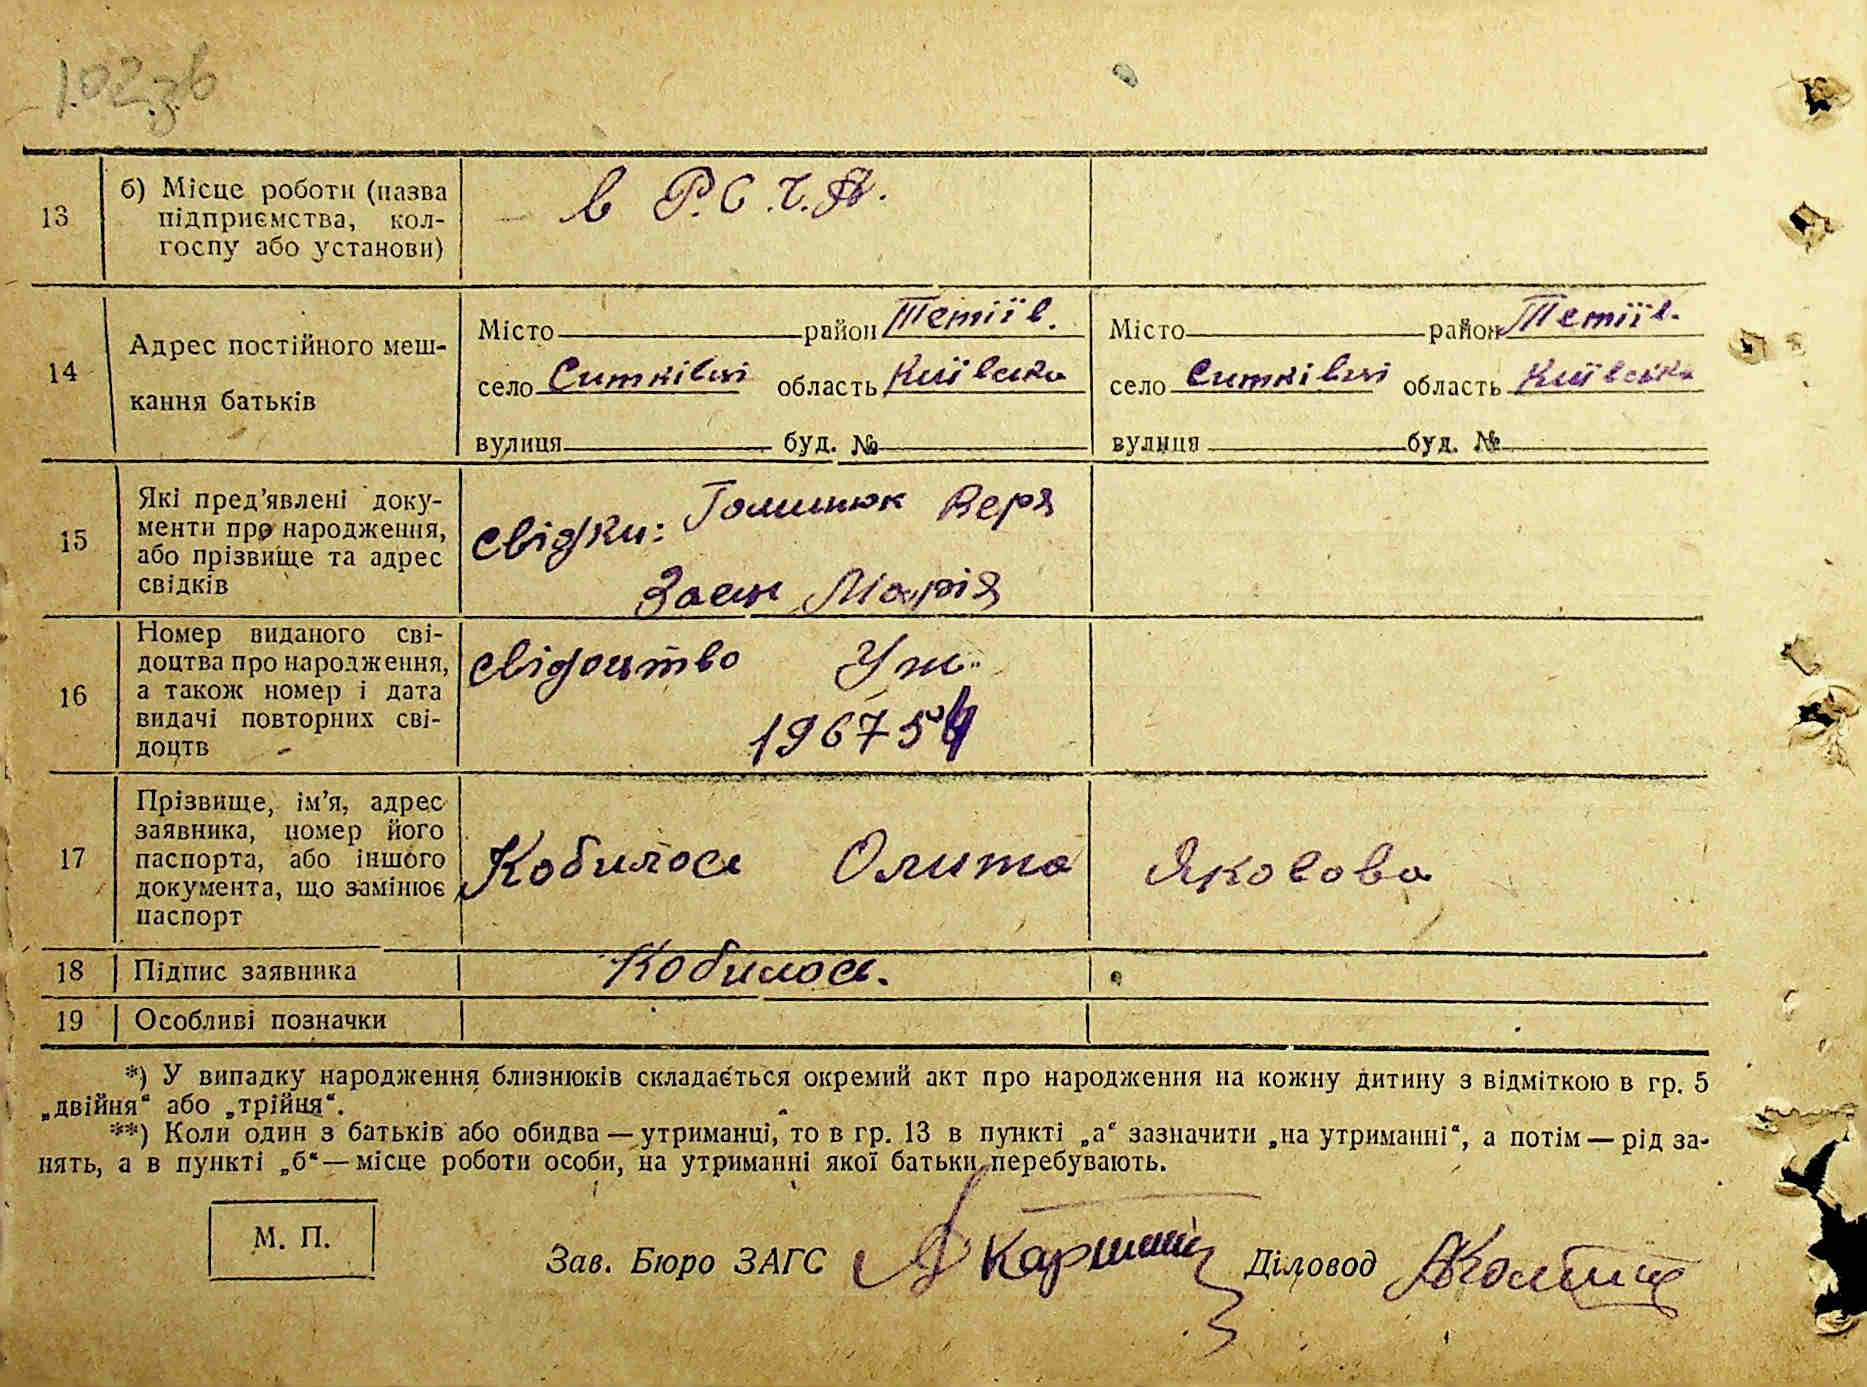 1.02.зв
13
б) Місце роботи (назва
підприємства, кол-
госпу або установи)
в Р.С.Ч.А.
14
Адрес постійного меш-
кання батьків
Місто район Тетіїв.
село Ситківці область Київська
вулиця буд. №
Місто район Тетіїв.
село Ситківці область Київська
вулиця буд. №
15
Які пред’явлені доку-
менти про народження,
або прізвище та адрес
свідків
свідки: Голинюк Вера
Заєц Марія
16
Номер виданого сві-
доцтва про народження,
а також номер і дата
видачі повторних сві-
доцтв
свідоцтво Уж.
196754
17
Прізвище, ім’я, адрес
заявника, номер його
паспорта, або іншого
документа, що замінює
паспорт
Кобилоск Олита Яковова
18
Підпис заявника
19
Особливі позначки
*) У випадку народження близнюків складається окремий акт про народження на кожну дитину з відміткою в гр. 5
„двійня“ або „трійня“.
**) Коли один з батьків або обидва — утриманці, то в гр. 13 в пункті „а“ зазначити „на утриманні“, а потім — рід за-
нять, а в пункті „б“ — місце роботи особи, на утриманні якої батьки перебувають.
М. П.
Зав. Бюро ЗАГС
Діловод